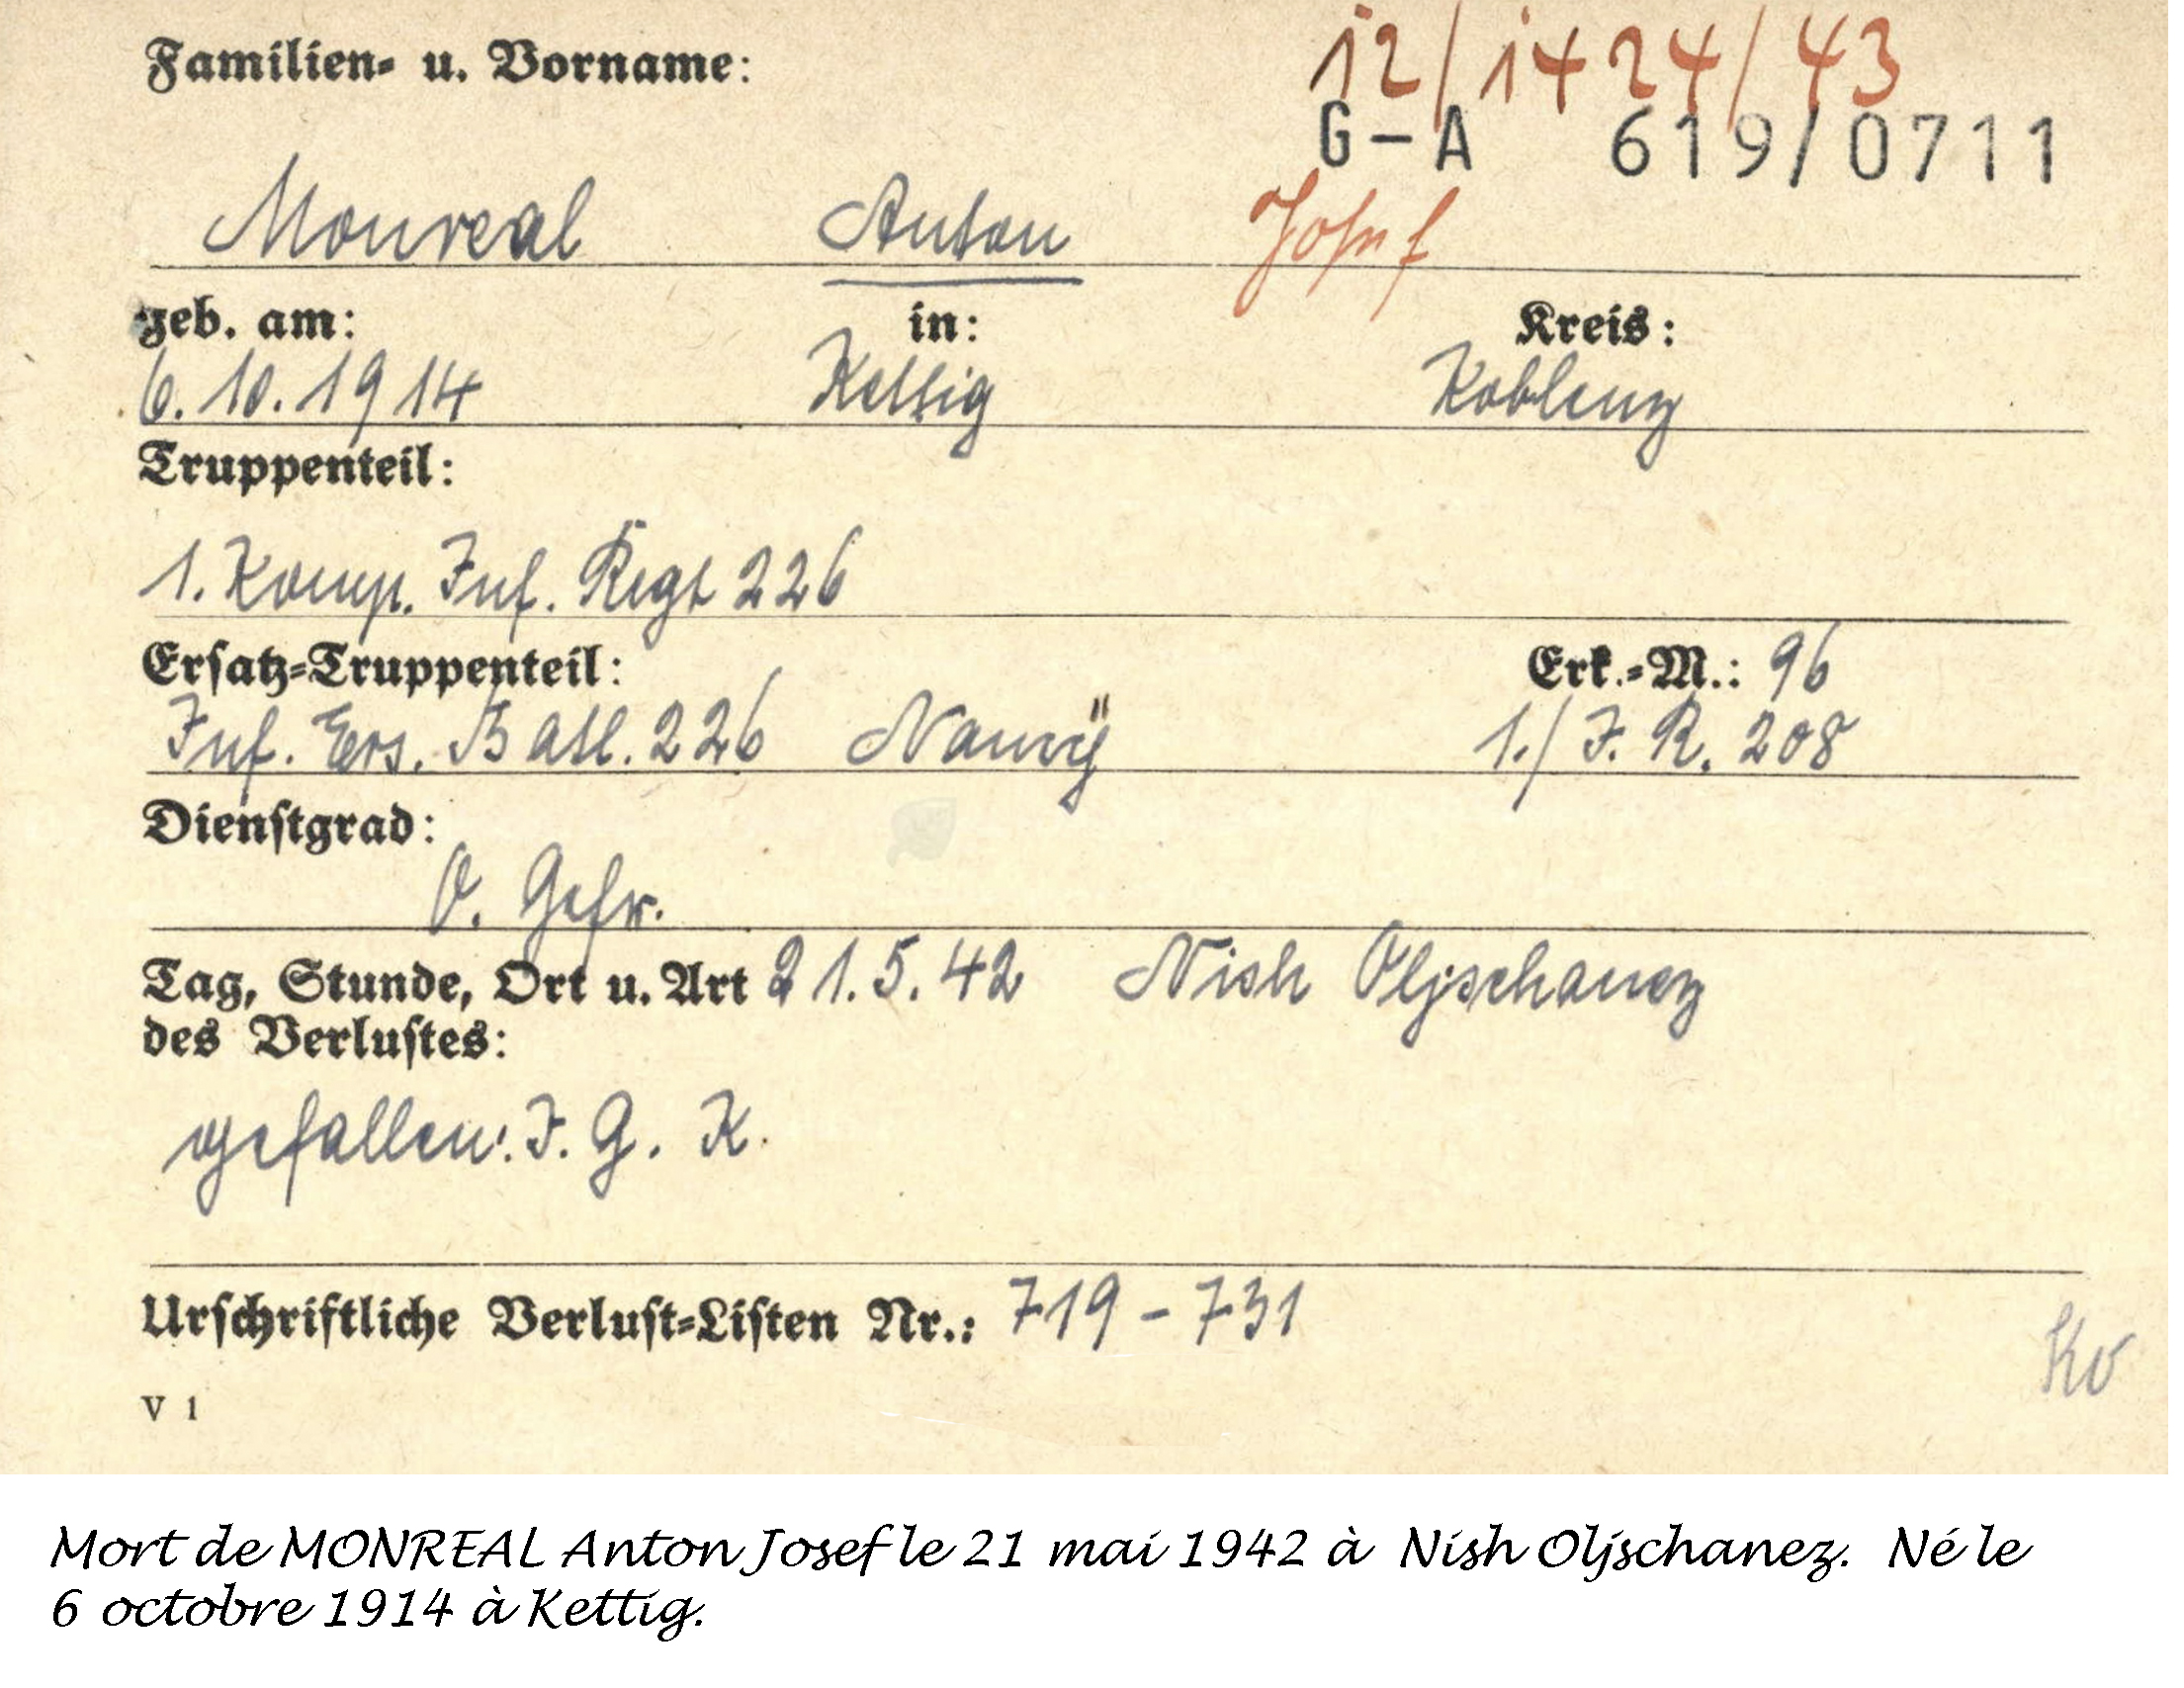 12/1424/43
Familien- u. Vorname:
G-A 619/0711
Monreal Anton Josef
geb. am: in: Kreis:
6.10.1914 Kettig Koblenz
Truppenteil:
1. Komp. Inf. Regt 226
Ersatz-Truppenteil: Erk.-M.: 96
Inf. Ers. Batl. 226 Nancÿ 1./J.R. 208
Dienstgrad:
O. Gefr.
Tag, Stunde, Ort u. Art 21.5.42 Nish Oljschanez
des Verlustes:
gefallen: I. G. K.
Urschriftliche Verlust-Listen Nr.: 719-731
V 1
Mort de MONREAL Anton Josef le 21 mai 1942 à Nish Oljschanez. Né le
6 octobre 1914 à Kettig.